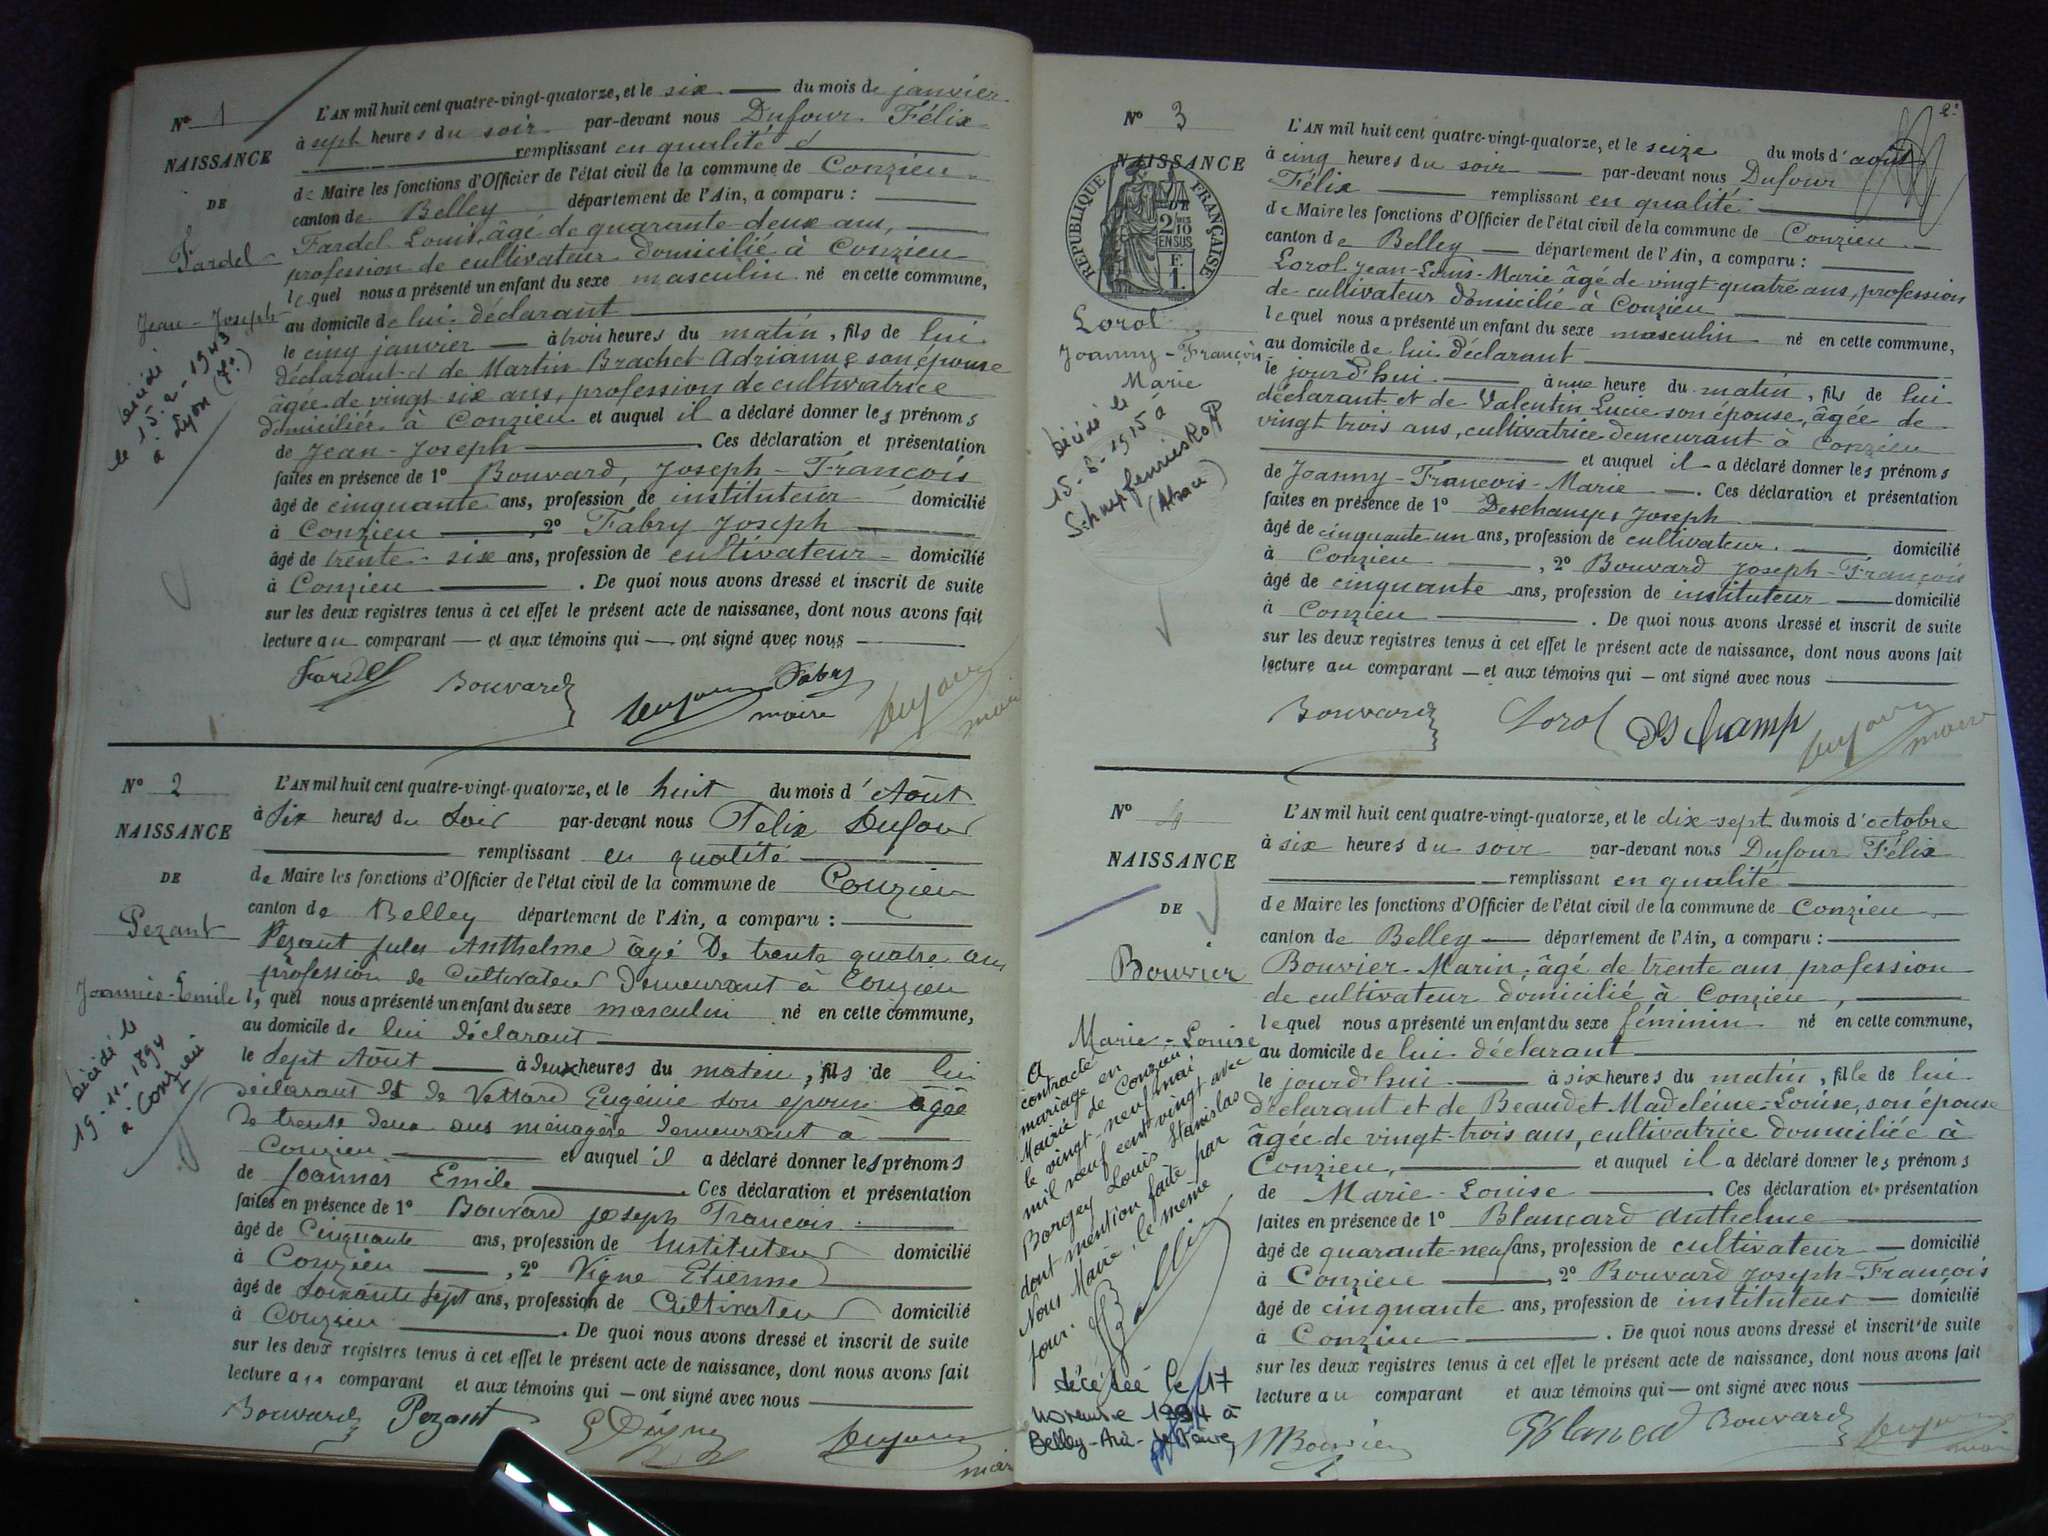 N° 1
NAISSANCE
DE
Fardel
Jean-Joseph
décédé
le 15-2-1943
à Lyon (7e)
L'AN mil huit cent quatre-vingt-quatorze, et le six du mois de janvier
à sept heures du soir par-devant nous Dufour Félix
remplissant en qualité d
de Maire les fonctions d'Officier de l'état civil de la commune de Conzieu
canton de Belley département de l'Ain, a comparu :
Fardel Louis, âgé de quarante deux ans,
profession de cultivateur domicilié à Conzieu
lequel nous a présenté un enfant du sexe masculin né en cette commune,
au domicile de lui déclarant
le cinq janvier à trois heures du matin, fils de lui
déclarant et de Martin Brachet Adrianne son épouse
âgée de vingt six ans, profession de cultivatrice
domiciliée à Conzieu et auquel il a déclaré donner les prénoms
de Jean-Joseph Ces déclaration et présentation
faites en présence de 1° Bouvard, Joseph-François
âgé de cinquante ans, profession de instituteur domicilié
à Conzieu, 2° Fabry Joseph
âgé de trente-six ans, profession de cultivateur domicilié
à Conzieu. De quoi nous avons dressé et inscrit de suite
sur les deux registres tenus à cet effet le présent acte de naissance, dont nous avons fait
lecture au comparant et aux témoins qui ont signé avec nous
Fardel Bouvard Dufour maire Fabry Dufour maire
N° 2
NAISSANCE
DE
Pezant
Joannès-Emile
décédé le
19-11-1894
à Conzieu
L'AN mil huit cent quatre-vingt-quatorze, et le huit du mois d'Août
à Six heures du Soir par-devant nous Félix Dufour
remplissant en qualité
de Maire les fonctions d'Officier de l'état civil de la commune de Conzieu
canton de Belley département de l'Ain, a comparu :
Pezant Jules Anthelme âgé De trente quatre ans
profession de Cultivateur Demeurant à Conzieu
lequel nous a présenté un enfant du sexe masculin né en cette commune,
au domicile de lui déclarant
le Sept Août à deux heures du matin, fils de lui
déclarant et de Vettard Eugénie son épouse âgée
De trente deux ans ménagère Demeurant à
Conzieu et auquel il a déclaré donner les prénoms
de Joannès Emile Ces déclaration et présentation
faites en présence de 1° Bouvard Joseph François
âgé de Cinquante ans, profession de Instituteur domicilié
à Conzieu, 2° Vigne Etienne
âgé de Soixante Sept ans, profession de Cultivateur domicilié
à Conzieu. De quoi nous avons dressé et inscrit de suite
sur les deux registres tenus à cet effet le présent acte de naissance, dont nous avons fait
lecture au comparant et aux témoins qui ont signé avec nous
Bouvard Pezant Dufour maire
2e
N° 3
NAISSANCE
DE
RÉPUBLIQUE FRANÇAISE
2/10
EN SUS
F.
1.
Lorol
Joanny-François
Marie
décédé le
15-6-1915 à
Schnepfenrieskopf
(Alsace)
L'AN mil huit cent quatre-vingt-quatorze, et le seize du mois d'août
à cinq heures du soir par-devant nous Dufour
Félix remplissant en qualité
de Maire les fonctions d'Officier de l'état civil de la commune de Conzieu
canton de Belley département de l'Ain, a comparu :
Lorol Jean-Louis-Marie âgé de vingt-quatre ans, profession
de cultivateur domicilié à Conzieu
lequel nous a présenté un enfant du sexe masculin né en cette commune,
au domicile de lui déclarant
le jourd'hui à une heure du matin, fils de lui
déclarant et de Valentin Lucie son épouse, âgée de
vingt trois ans, cultivatrice demeurant à Conzieu
et auquel il a déclaré donner les prénoms
de Joanny-François-Marie. Ces déclaration et présentation
faites en présence de 1° Deschamps Joseph
âgé de cinquante un ans, profession de cultivateur domicilié
à Conzieu, 2° Bouvard Joseph-François
âgé de cinquante ans, profession de instituteur domicilié
à Conzieu. De quoi nous avons dressé et inscrit de suite
sur les deux registres tenus à cet effet le présent acte de naissance, dont nous avons fait
lecture au comparant et aux témoins qui ont signé avec nous
Bouvard Lorol Deschamp Dufour maire
N° 4
NAISSANCE
DE
Bouvier
Marie-Louise
A
contracté
mariage en
Mairie de Conzieu
le vingt-neuf mai
mil neuf cent vingt avec
Borgey Louis Stanislas
dont mention faite par
Nous Maire, le même
jour.
décédée le 17
novembre 1994 à
Belley-Ain
L'AN mil huit cent quatre-vingt-quatorze, et le dix-sept du mois d'octobre
à six heures du soir par-devant nous Dufour Félix
remplissant en qualité
de Maire les fonctions d'Officier de l'état civil de la commune de Conzieu
canton de Belley département de l'Ain, a comparu :
Bouvier Marin, âgé de trente ans profession
de cultivateur domicilié à Conzieu,
lequel nous a présenté un enfant du sexe féminin né en cette commune,
au domicile de lui déclarant
le jourd'hui à six heures du matin, fille de lui
déclarant et de Beaudet Madeleine-Louise, son épouse
âgée de vingt-trois ans, cultivatrice domiciliée à
Conzieu, et auquel il a déclaré donner les prénoms
de Marie-Louise Ces déclaration et présentation
faites en présence de 1° Blancard Anthelme
âgé de quarante-neuf ans, profession de cultivateur domicilié
à Conzieu, 2° Bouvard Joseph-François
âgé de cinquante ans, profession de instituteur domicilié
à Conzieu. De quoi nous avons dressé et inscrit de suite
sur les deux registres tenus à cet effet le présent acte de naissance, dont nous avons fait
lecture au comparant et aux témoins qui ont signé avec nous
MBouvier Blancard Bouvard Dufour maire